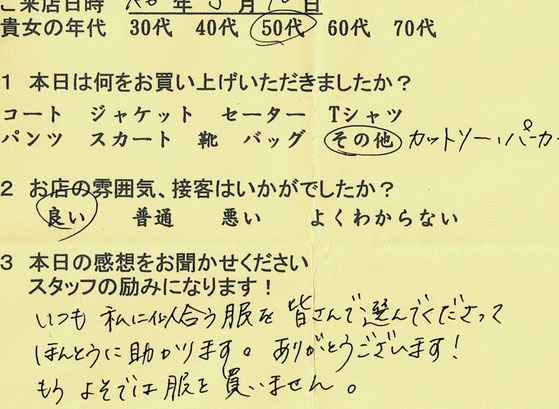 ご来店日時 年 月 日
貴女の年代 30代 40代 50代 60代 70代
1 本日は何をお買い上げいただきましたか？
コート ジャケット セーター Tシャツ
パンツ スカート 靴 バッグ その他 カットソー、パーカー
2 お店の雰囲気、接客はいかがでしたか？
良い 普通 悪い よくわからない
3 本日の感想をお聞かせください
スタッフの励みになります！
いつも 私に似合う服を 皆さんで選んでくださって
ほんとうに助かります。ありがとうございます！
もう よそでは服を買いません。